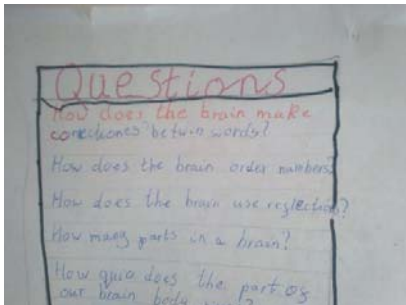 Questions
How does the brain make
conectiones betwin words?
How does the brain order numbers?
How does the brain use reflection?
How many parts in a brain?
How quic does the part of
our brain body